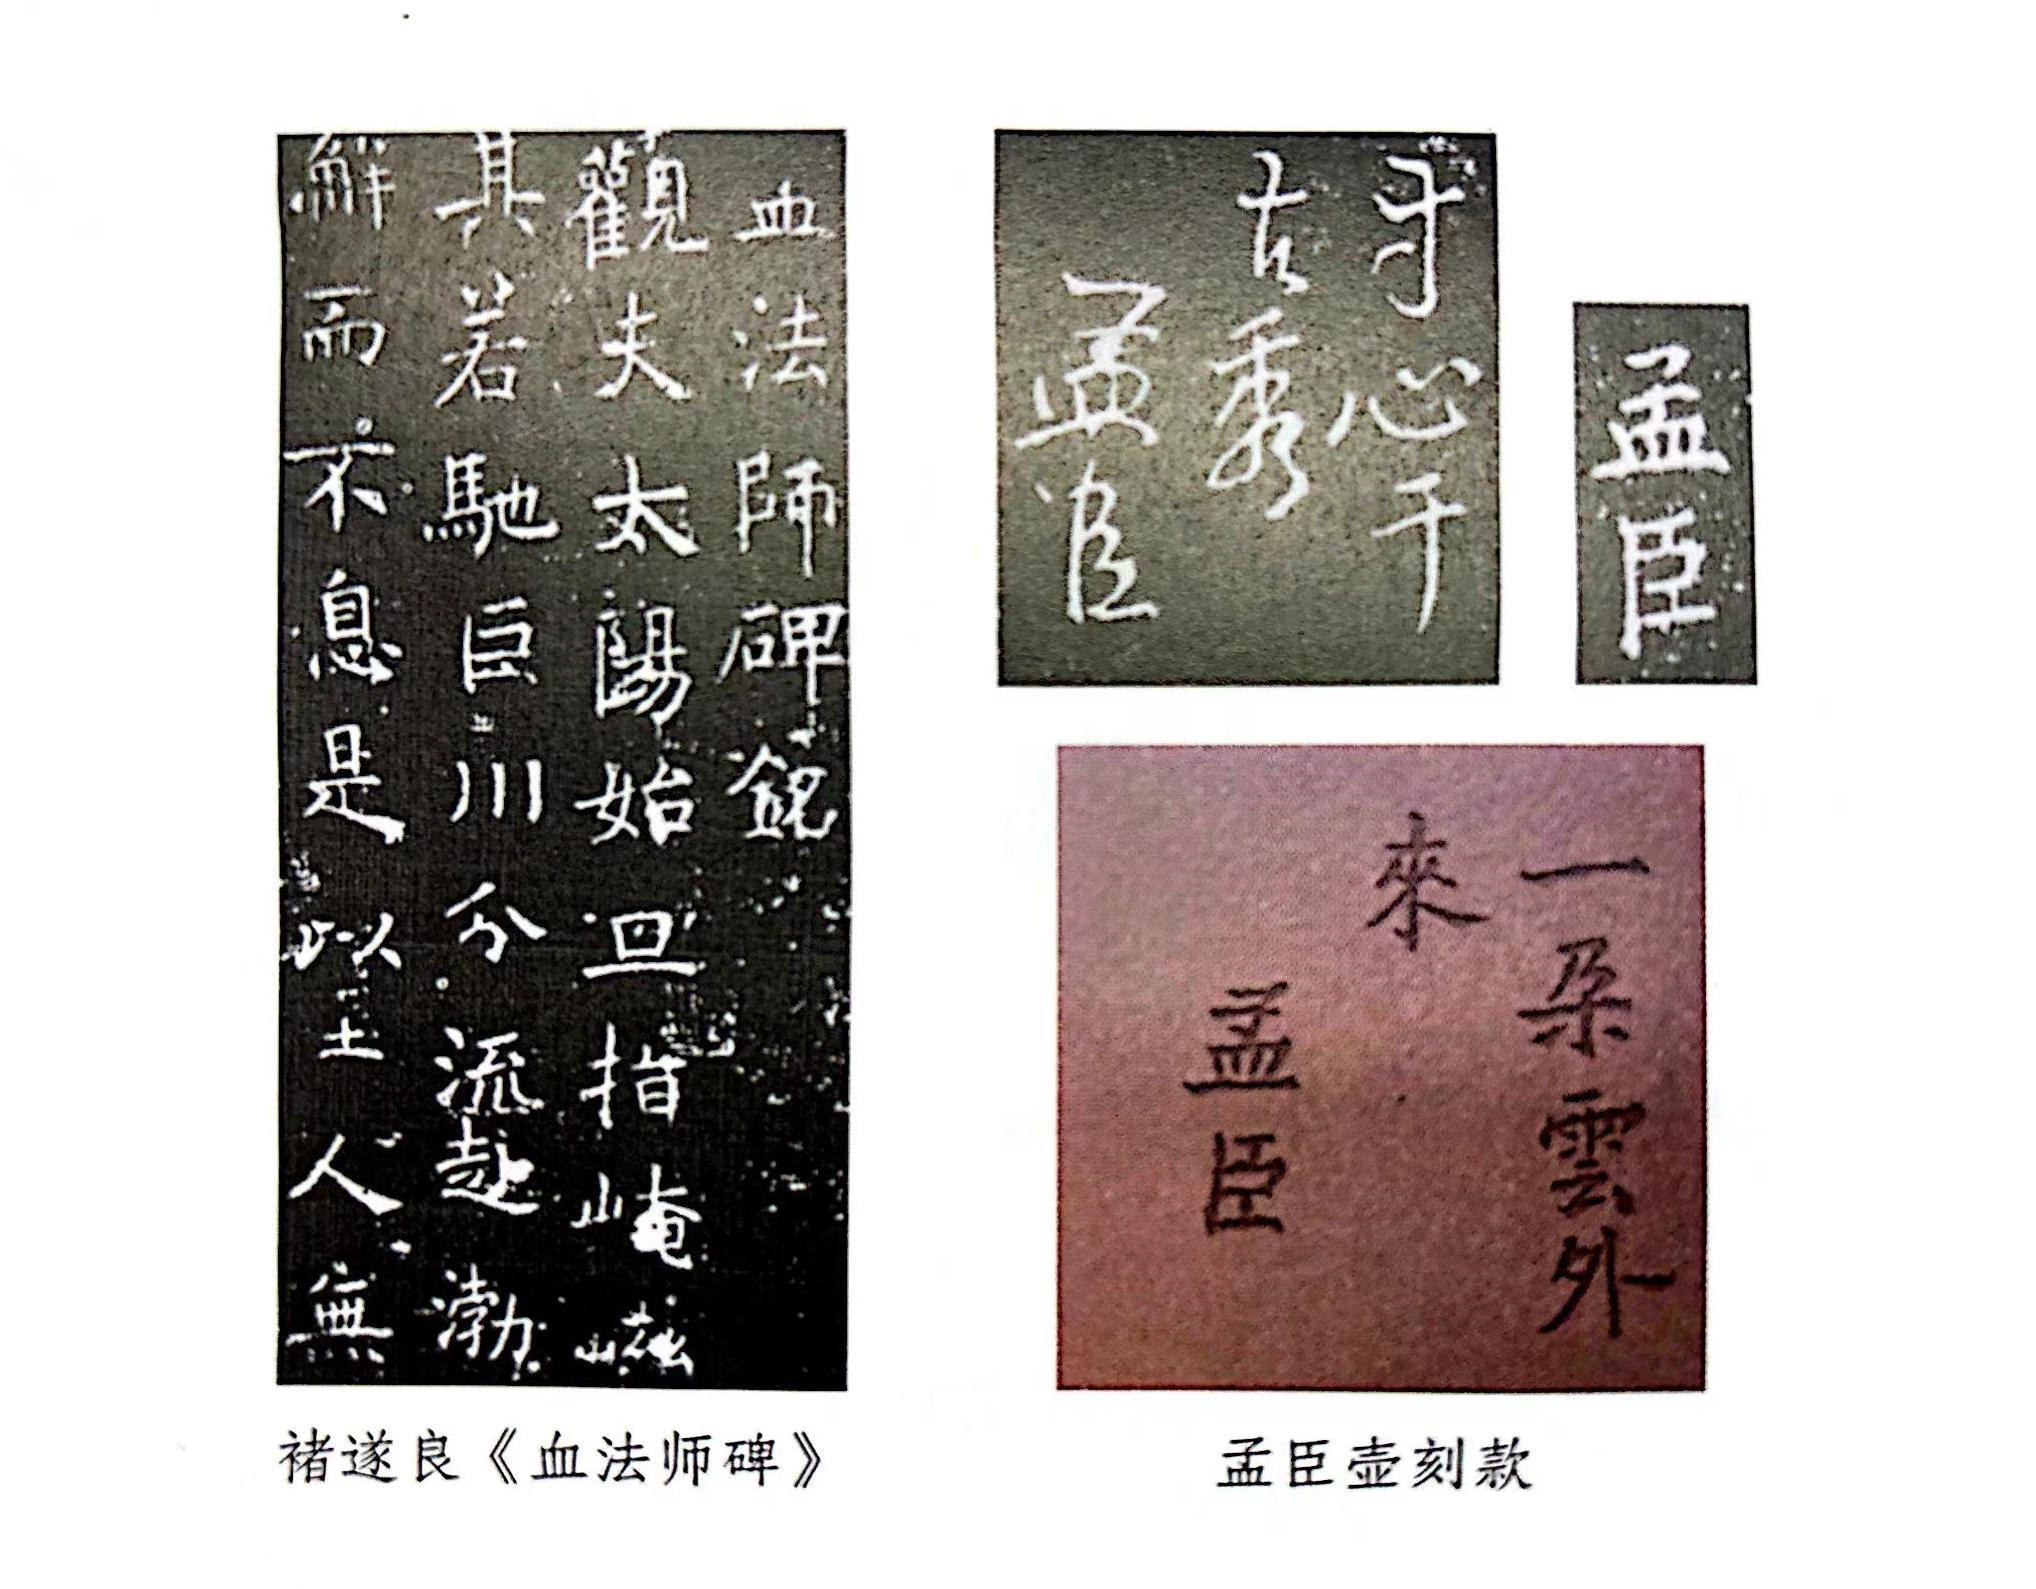 血法師碑銘
觀夫太陽始旦指崦嵫
其若馳巨川分流赴渤
澥而不息是以至人無
心千
古秀
孟臣
孟臣
一朵雲外
來
孟臣
褚遂良《血法师碑》
孟臣壶刻款